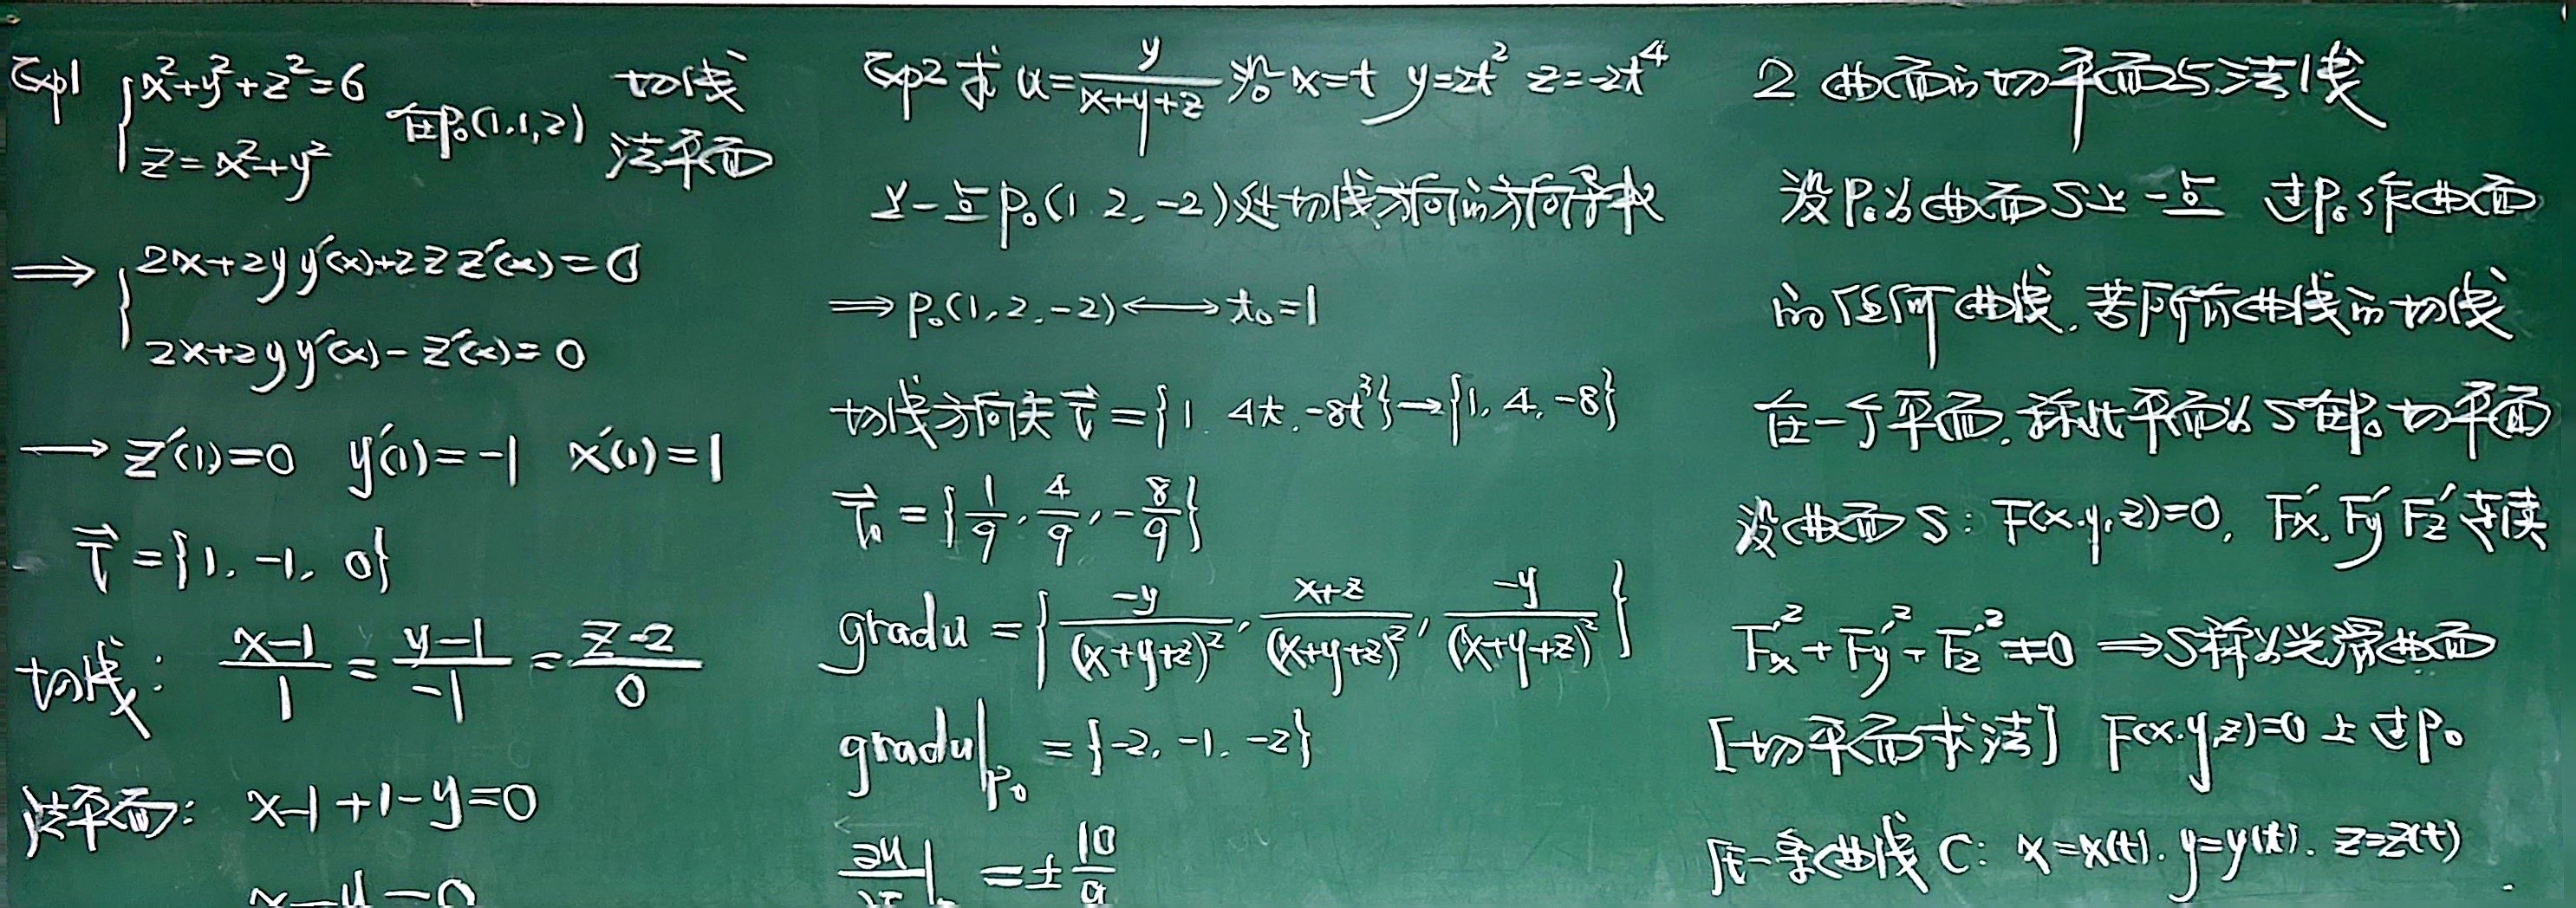 Exp1 { x²+y²+z²=6
z=x²+y² 在P₀(1,1,2) 切线 法平面
⟹ { 2x+2yy′(x)+2zz′(x)=0
2x+2yy′(x)-z′(x)=0
→ z′(1)=0 y′(1)=-1 x′(1)=1
τ⃗={1, -1, 0}
切线: (x-1)/1=(y-1)/-1=(z-2)/0
法平面: x-1+1-y=0
x-y=0
Exp2 求 u=y/(x+y+z) 沿 x=t y=2t² z=-2t⁴
上一点P₀(1 2, -2)处切线方向的方向导数
⟹ P₀(1,2,-2)⟷t₀=1
切线方向矢 τ⃗={1 4t, -8t³}→{1, 4, -8}
τ⃗₀={1/9, 4/9, -8/9}
gradu={-y/(x+y+z)², (x+z)/(x+y+z)², -y/(x+y+z)²}
gradu|P₀={-2, -1, -2}
∂u/∂τ|P₀=±10/9
2 曲面的切平面与法线
设P₀为曲面S上一点 过P₀作曲面
的任何曲线,若所有曲线的切线
在一个平面,称此平面为S在P₀切平面
设曲面S: F(x,y,z)=0, Fx′, Fy′ Fz′连续
Fx′²+Fy′²+Fz′²≠0 ⟹S称为光滑曲面
[切平面求法] F(x,y,z)=0上过P₀
任一条曲线C: x=x(t), y=y(t), z=z(t)